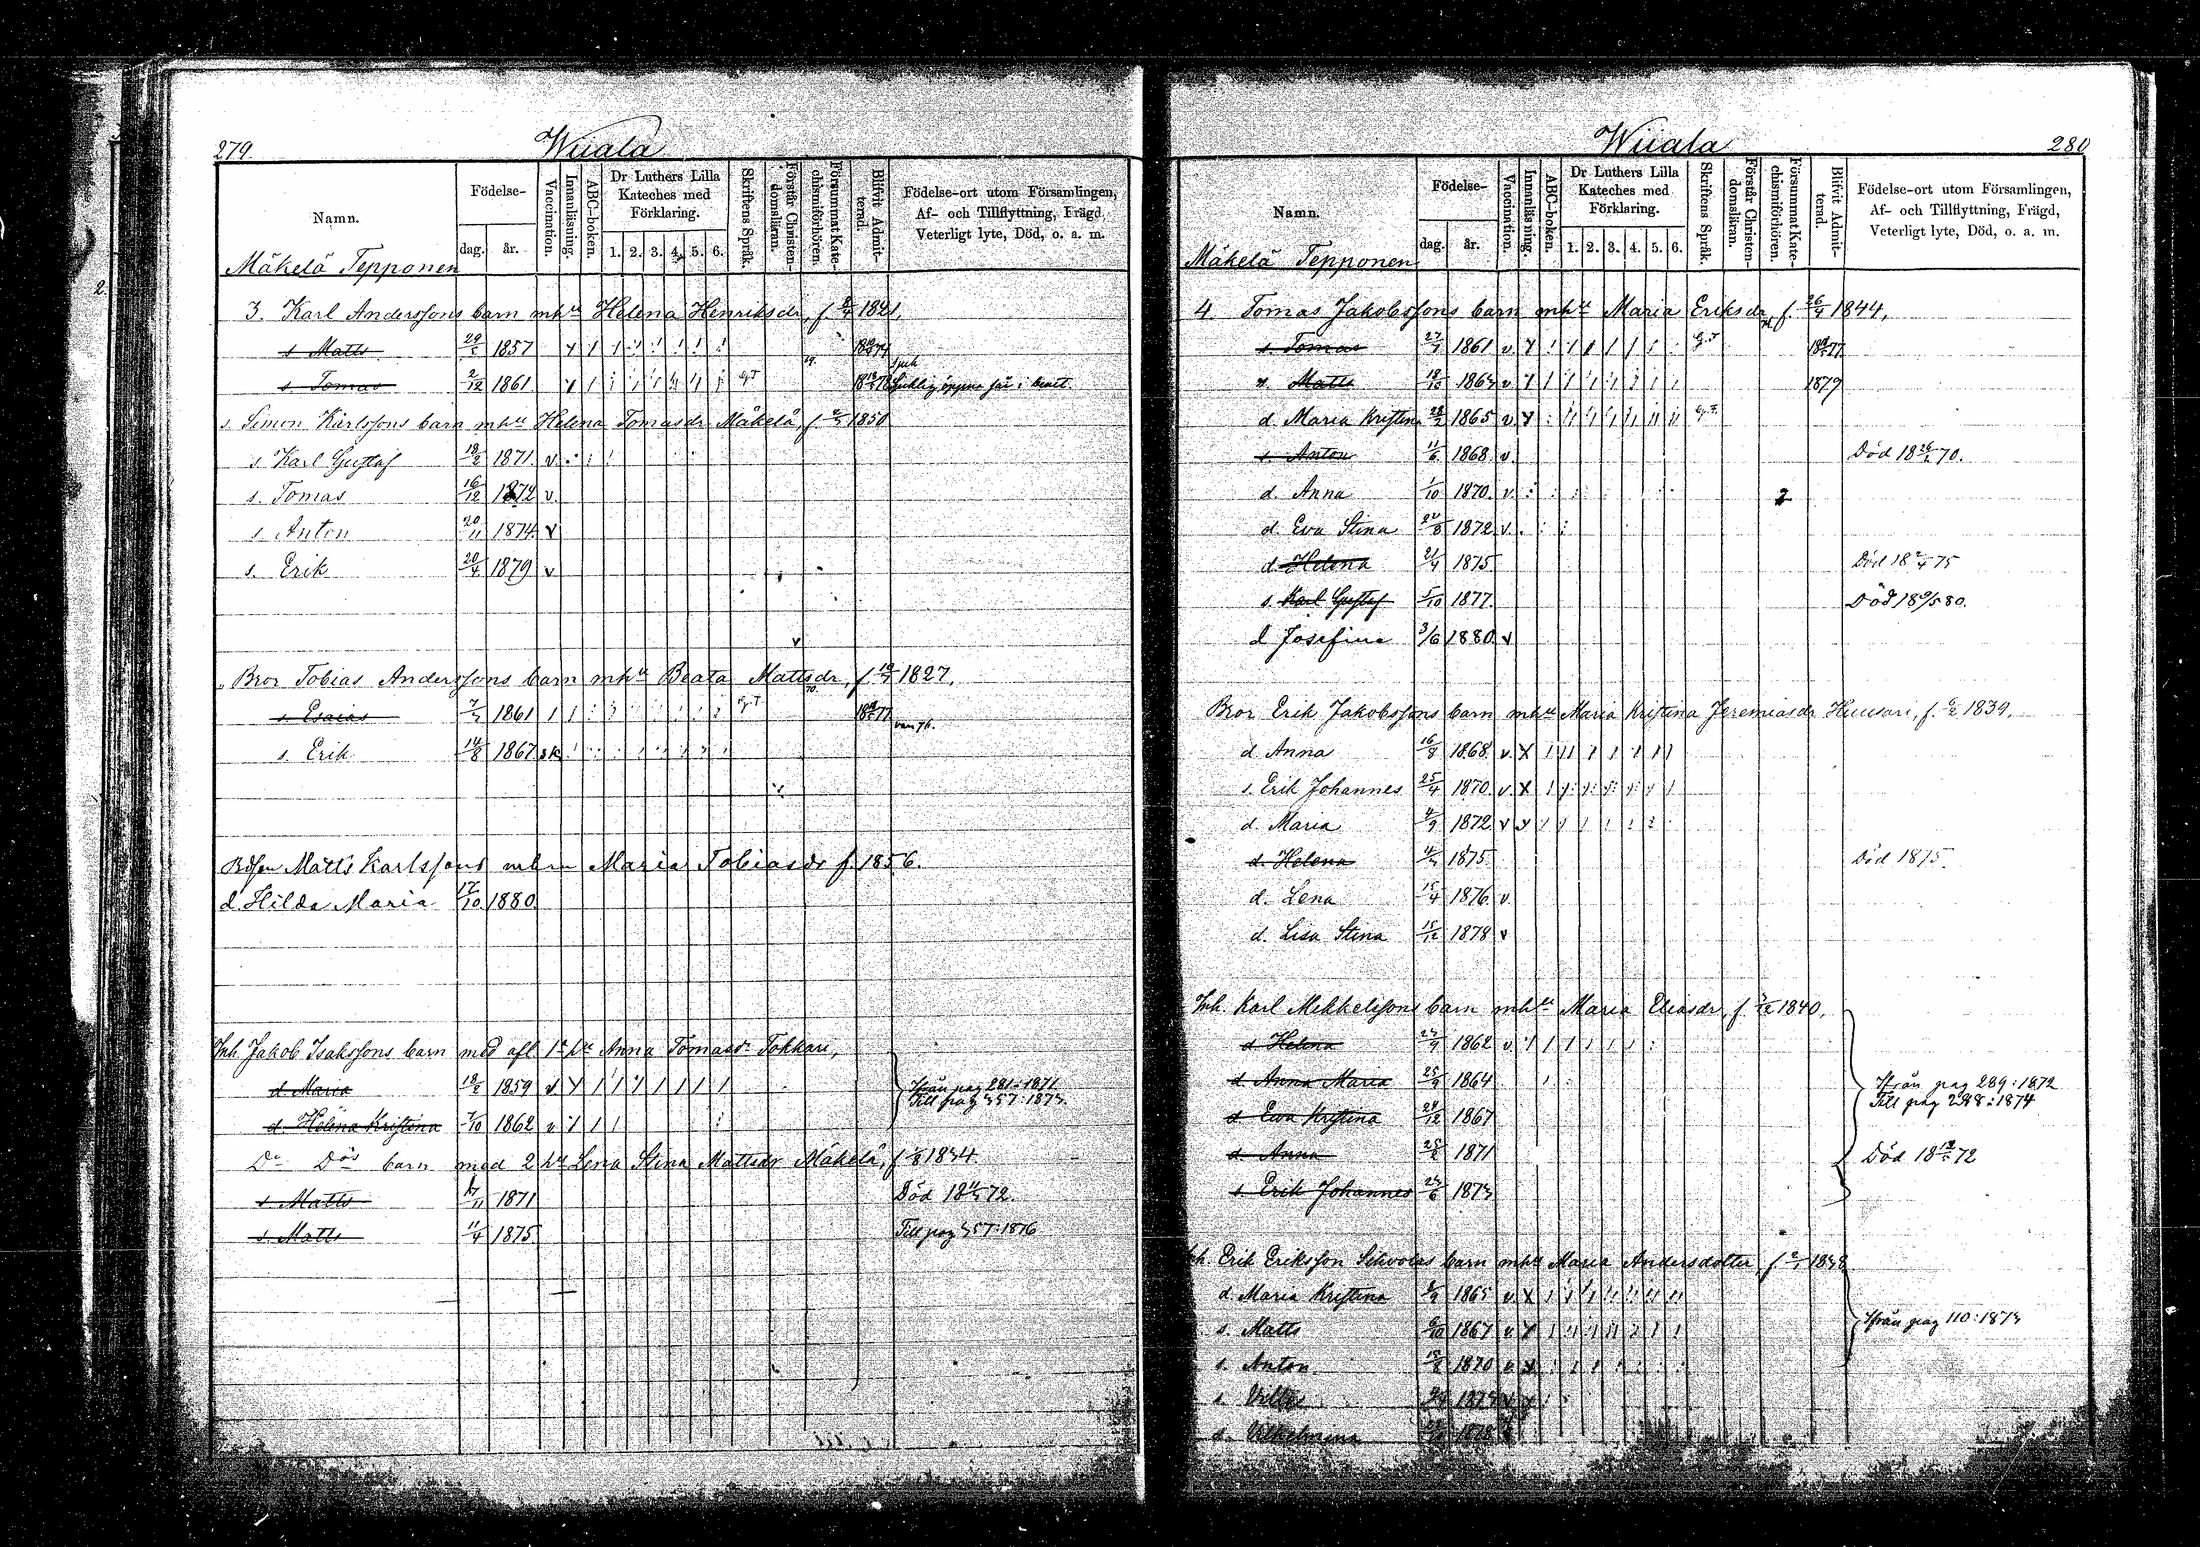 279.
Wiiala
Namn.
Födelse-
dag. år.
Vaccination.
Innanläsning.
ABC-boken.
Dr Luthers Lilla Kateches med Förklaring.
1. 2. 3. 4. 5. 6.
Skriftens Språk.
Förstår Christendomsläran.
Försummat Katechismiförhören.
Blifvit Admitterad.
Födelse-ort utom Församlingen, Af- och Tillflyttning, Frägd, Veterligt lyte, Död, o. a. m.
Mäkelä Tepponen
3. Karl Anderssons barn mhu Helena Henriksdr, f. 1821,
s Matts 1857
s Tomas 2/12 1861
s. Simon Karlssons barn mhu Helena Tomasdr Mäkelä, f. 1850
s Karl Gustaf 18/2 1871. v
s. Tomas 16/12 1872 v.
s. Anton 20/11 1874. v
s. Erik 20/4 1879 v
Bror Tobias Anderssons barn mhu Beata Mattsdr, f. 1827,
s. Esaias 1861
s. Erik 14/8 1867
Matts Karlssons Maria Tobiasdr f. 1856.
d. Hilda Maria 17/10 1880.
Inh. Jakob Isakssons barn med afl. 1a hu Anna Tomasdr Tokkari,
d. Maria 18/2 1859 v
Ifrån pag 281:1871
Till pag 357:1873.
d. Helena Kristina 7/10 1862 v
Do Dos barn med 2 hu Lena Stina Mattsdr Mäkelä, f. 1834.
s Matts 1871 Död 72.
s. Matts 11/4 1875 Till pag 357:1876
Wiiala
280
Namn.
Födelse-
dag. år.
Vaccination.
Innanläsning.
ABC-boken.
Dr Luthers Lilla Kateches med Förklaring.
1. 2. 3. 4. 5. 6.
Skriftens Språk.
Förstår Christendomsläran.
Försummat Katechismiförhören.
Blifvit Admitterad.
Födelse-ort utom Församlingen, Af- och Tillflyttning, Frägd, Veterligt lyte, Död, o. a. m.
Mäkelä Tepponen
4. Tomas Jakobssons barn mhu Maria Eriksdr, f. 1844,
s. Tomas 1861 v.
s. Matts 18/10 1863 v 1879
d. Maria Kristina 1865 v.
s. Anton 11/6 1868 v. Död 70.
d. Anna 1/10 1870. v.
d. Eva Stina 1872 v.
d. Helena 21/4 1875 Död 75
s. Karl Gustaf 5/10 1877. Död 18 9/5 80.
d Josefina 3/6 1880. v
Bror Erik Jakobssons barn mhu Maria Kristina Jeremiasdr Huusari, f. 1839,
d Anna 16/8 1868. v. X
s. Erik Johannes 25/4 1870. v. X
d. Maria 1872 v
d. Helena 1875 Död 1875
d. Lena 15/4 1876 v.
d. Lisa Stina 15/12 1878 v
Inh. Karl Mikkelssons barn mhu Maria Eliasdr, f. 1840,
d Helena 1862 v.
d. Anna Maria 25/9 1864
Ifrån pag 289:1872
Till pag 298:1874
d Eva Kristina 24/12 1867
d. Anna 1871 Död 72
s. Erik Johannes 1873
Erik Eriksson barn mhu Maria Andersdotter, f. 1838
d. Maria Kristina 1865 v. X
s. Matts 1867 v.
Ifrån pag 110:1873
s. Anton 1870 v
s. 1874
d. Vilhelmina 1878